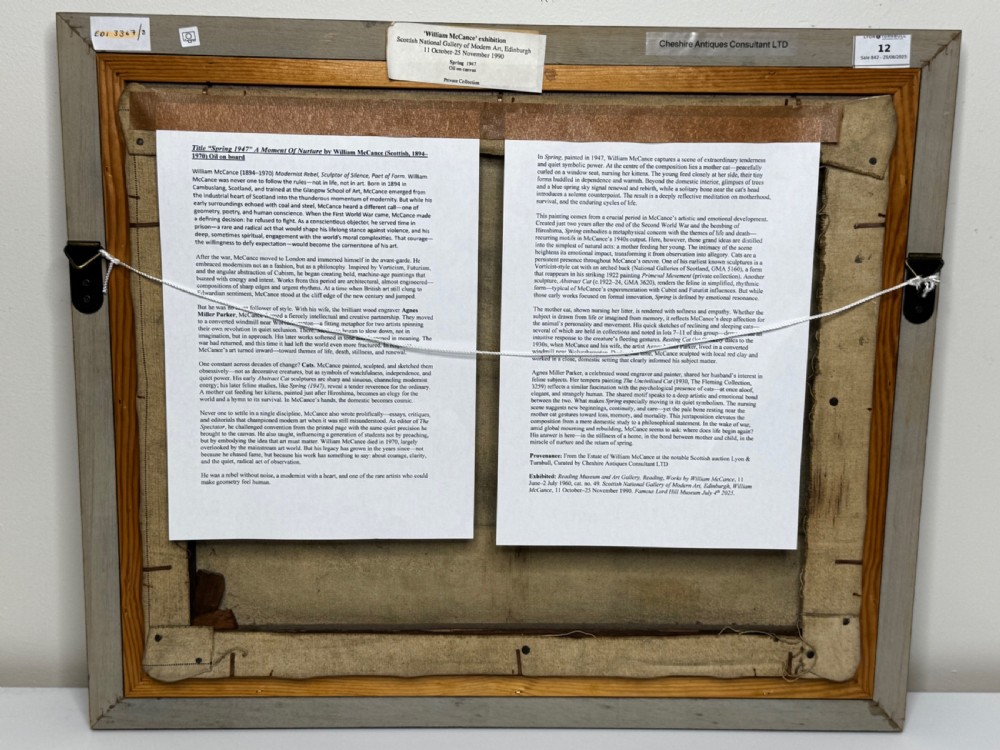 'William McCance' exhibition
Scottish National Gallery of Modern Art, Edinburgh
11 October-25 November 1990
Spring 1947
Oil on canvas
Private Collection
Cheshire Antiques Consultant LTD
12
Sale 842 - 25/06/2025
Title "Spring 1947" A Moment Of Nurture by William McCance (Scottish, 1894–
1970) Oil on board
William McCance (1894–1970) Modernist Rebel, Sculptor of Silence, Poet of Form. William
McCance was never one to follow the rules—not in life, not in art. Born in 1894 in
Cambuslang, Scotland, and trained at the Glasgow School of Art, McCance emerged from
the industrial heart of Scotland into the thunderous momentum of modernity. But while his
early surroundings echoed with coal and steel, McCance heard a different call—one of
geometry, poetry, and human conscience. When the First World War came, McCance made
a defining decision: he refused to fight. As a conscientious objector, he served time in
prison—a rare and radical act that would shape his lifelong stance against violence, and his
deep, sometimes spiritual, engagement with the world's moral complexities. That courage—
the willingness to defy expectation—would become the cornerstone of his art.
After the war, McCance moved to London and immersed himself in the avant-garde. He
embraced modernism not as a fashion, but as a philosophy. Inspired by Vorticism, Futurism,
and the angular abstraction of Cubism, he began creating bold, machine-age paintings that
buzzed with energy and intent. Works from this period are architectural, almost engineered—
compositions of sharp edges and urgent rhythms. At a time when British art still clung to
Edwardian sentiment, McCance stood at the cliff edge of the new century and jumped.
But he was no follower of style. With his wife, the brilliant wood engraver Agnes
Miller Parker, McCance a fiercely intellectual and creative partnership. They moved
to a converted windmill near a fitting metaphor for two artists spinning
their own revolution in quiet seclusion. There, began to slow down, not in
imagination, but in approach. His later works softened in in meaning. The
war had returned, and this time it had left the world even more fractured. In
McCance's art turned inward—toward themes of life, death, stillness, and renewal.
One constant across decades of change? Cats. McCance painted, sculpted, and sketched them
obsessively—not as decorative creatures, but as symbols of watchfulness, independence, and
quiet power. His early Abstract Cat sculptures are sharp and sinuous, channeling modernist
energy; his later feline studies, like Spring (1947), reveal a tender reverence for the ordinary.
A mother cat feeding her kittens, painted just after Hiroshima, becomes an elegy for the
world and a hymn to its survival. In McCance's hands, the domestic becomes cosmic.
Never one to settle in a single discipline, McCance also wrote prolifically—essays, critiques,
and editorials that championed modern art when it was still misunderstood. As editor of The
Spectator, he challenged convention from the printed page with the same quiet precision he
brought to the canvas. He also taught, influencing a generation of students not by preaching,
but by embodying the idea that art must matter. William McCance died in 1970, largely
overlooked by the mainstream art world. But his legacy has grown in the years since—not
because he chased fame, but because his work has something to say: about courage, clarity,
and the quiet, radical act of observation.
He was a rebel without noise, a modernist with a heart, and one of the rare artists who could
make geometry feel human.
In Spring, painted in 1947, William McCance captures a scene of extraordinary tenderness
and quiet symbolic power. At the centre of the composition lies a mother cat—peacefully
curled on a window seat, nursing her kittens. The young feed closely at her side, their tiny
forms huddled in dependence and warmth. Beyond the domestic interior, glimpses of trees
and a blue spring sky signal renewal and rebirth, while a solitary bone near the cat's head
introduces a solemn counterpoint. The result is a deeply reflective meditation on motherhood,
survival, and the enduring cycles of life.
This painting comes from a crucial period in McCance's artistic and emotional development.
Created just two years after the end of the Second World War and the bombing of
Hiroshima, Spring embodies a metaphysical concern with the themes of life and death—
recurring motifs in McCance's 1940s output. Here, however, those grand ideas are distilled
into the simplest of natural acts: a mother feeding her young. The intimacy of the scene
heightens its emotional impact, transforming it from observation into allegory. Cats are a
persistent presence throughout McCance's oeuvre. One of his earliest known sculptures is a
Vorticist-style cat with an arched back (National Galleries of Scotland, GMA 5160), a form
that reappears in his striking 1922 painting Primeval Movement (private collection). Another
sculpture, Abstract Cat (c.1922–24, GMA 3620), renders the feline in simplified, rhythmic
form—typical of McCance's experimentation with Cubist and Futurist influences. But while
those early works focused on formal innovation, Spring is defined by emotional resonance.
The mother cat, shown nursing her litter, is rendered with softness and empathy. Whether the
subject is drawn from life or imagined from memory, it reflects McCance's deep affection for
the animal's personality and movement. His quick sketches of reclining and sleeping cats—
several of which are held in collections and noted in lots 7–11 of this group— an
intuitive response to the creature's fleeting gestures. Resting Cat dates to the
1930s, when McCance and his wife, the artist Agnes Parker, lived in a converted
windmill near time, McCance sculpted with local red clay and
worked in a close, domestic setting that clearly informed his subject matter.
Agnes Miller Parker, a celebrated wood engraver and painter, shared her husband's interest in
feline subjects. Her tempera painting The Uncivilised Cat (1930, The Fleming Collection,
3259) reflects a similar fascination with the psychological presence of cats—at once aloof,
elegant, and strangely human. The shared motif speaks to a deep artistic and emotional bond
between the two. What makes Spring especially moving is its quiet symbolism. The nursing
scene suggests new beginnings, continuity, and care—yet the pale bone resting near the
mother cat gestures toward loss, memory, and mortality. This juxtaposition elevates the
composition from a mere domestic study to a philosophical statement. In the wake of war,
amid global mourning and rebuilding, McCance seems to ask: where does life begin again?
His answer is here—in the stillness of a home, in the bond between mother and child, in the
miracle of nurture and the return of spring.
Provenance: From the Estate of William McCance at the notable Scottish auction Lyon &
Turnbull, Curated by Cheshire Antiques Consultant LTD
Exhibited: Reading Museum and Art Gallery, Reading, Works by William McCance, 11
June–2 July 1960, cat. no. 49. Scottish National Gallery of Modern Art, Edinburgh, William
McCance, 11 October–25 November 1990. Famous Lord Hill Museum July 4th 2025.